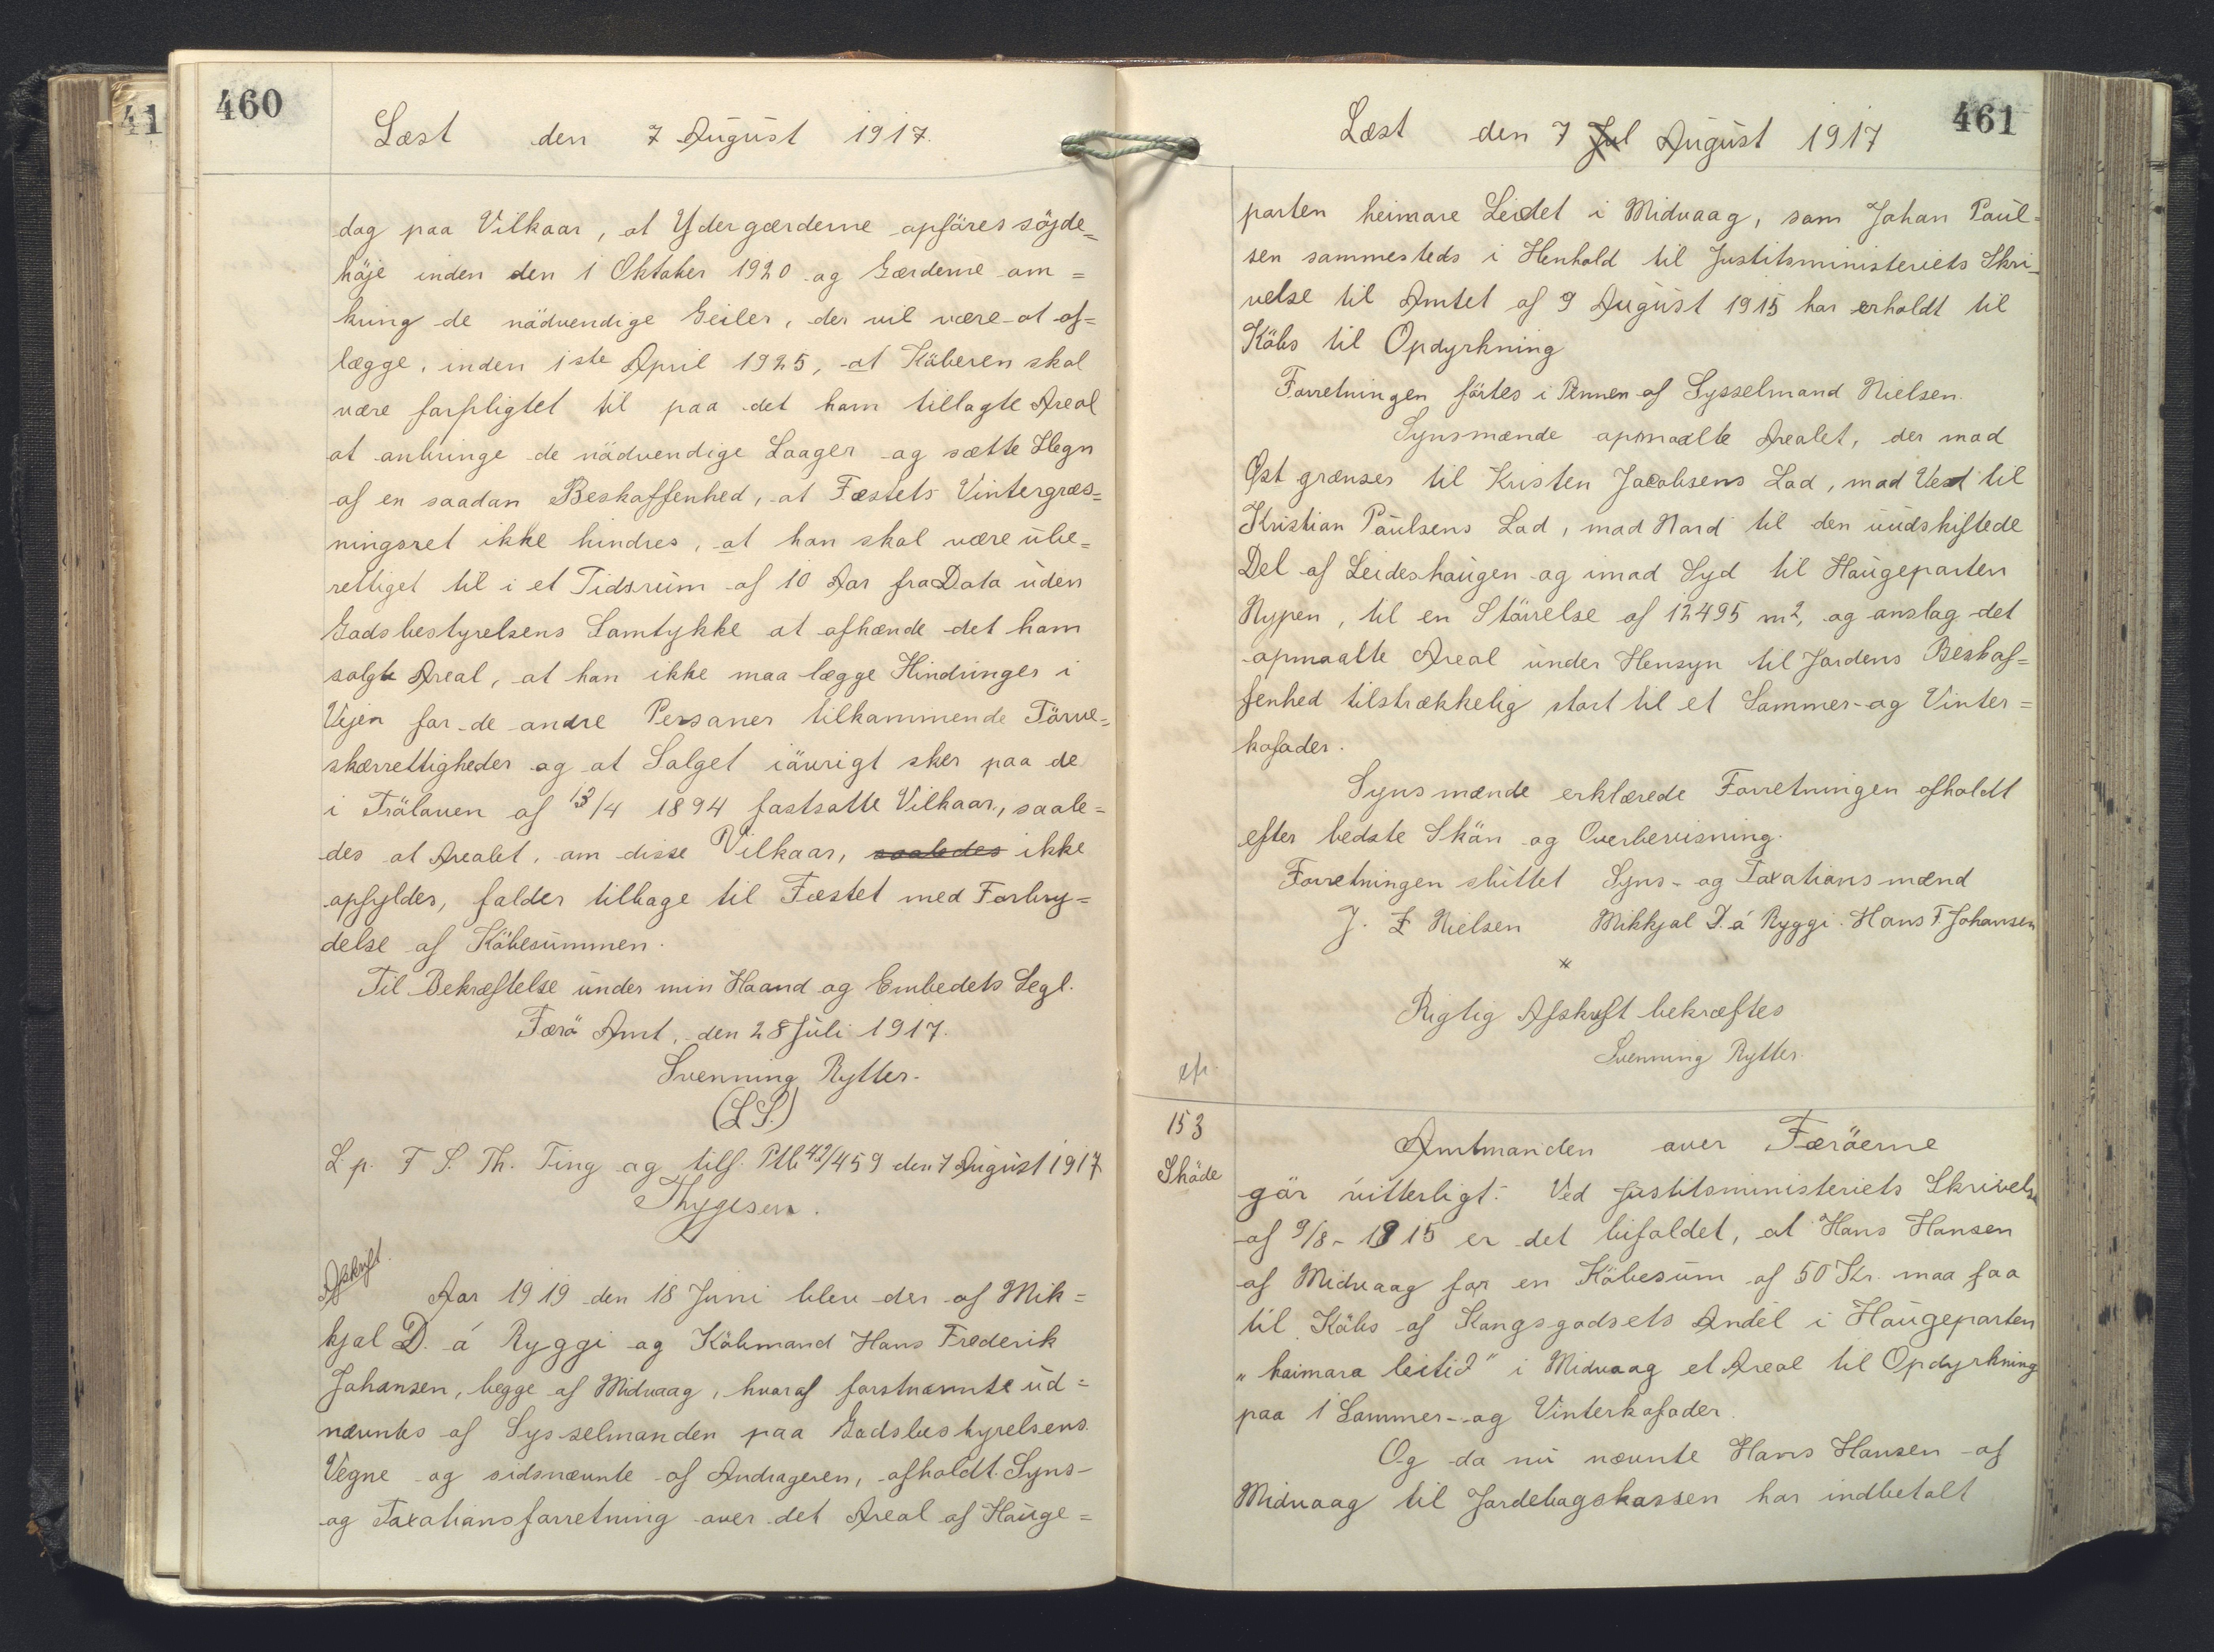 41
460
Læst den 7 August 1917.
dag paa Vilkaar, at Ydergærderne opføres söjde=
höje inden den 1 Oktober 1920 og Gærderne om=
kring de nödvendige Geiler, der vil være at af=
lægge, inden 1ste April 1925, at Köberen skal
være forpligtet til paa det ham tillagte Areal
at anbringe de nödvendige Laager og sætte Hegn
af en saadan Beskaffenhed, at Fæstets Vintergræs=
ningsret ikke hindres, at han skal være ube=
rettiget til i et Tidsrum af 10 Aar fra Dato uden
Godsbestyrelsens Samtykke at afhænde det ham
solgte Areal, at han ikke maa lægge Hindringer i
Vejen for de andre Personer tilkommende Törve=
skærrettigheder og at Salget iövrigt sker paa de
i Trälöven af 13/4 1894 fastsatte Vilkaar, saale=
des at Arealet, om disse Vilkaar, saaledes ikke
opfyldes, falder tilbage til Fæstet med Forbry=
delse af Köbesummen.
Til Bekræftelse under min Haand og Embedets Segl.
Færö Amt, den 28 Juli 1917.
Svenning Rytter.
(L S.)
L. p. F S. Th. Ting og tilf. Ptb 42/459 den 7 August 1917
Thygesen.
Afskrift.
Aar 1919 den 18 Juni blev der af Mik=
kjal D. á Ryggi og Köbmand Hans Frederik
Johansen, begge af Midvaag, hvoraf førstnævnte ud=
nævntes af Sysselmanden paa Godsbestyrelsens
Vegne og sidsnævnte af Andrageren, afholdt Syns-
og Taxationsforretning over det Areal af Hauge=
461
Læst den 7 Jul August 1917
parten heimare Leidet i Midvaag, som Johan Paul=
sen sammesteds i Henhold til Justitsministeriets Skri-
velse til Amtet af 9 August 1915 har erholdt til
Köbs til Opdyrkning
Forretningen förtes i Pennen af Sysselmand Nielsen.
Synsmænde opmaalte Arealet, der mod
Øst grænser til Kristen Jacobsens Lod, mod Vest til
Kristian Paulsens Lod, mod Nord til den uudskiftede
Del af Leideshaugen og imod Syd til Haugeparten
Nypen, til en Störrelse af 12495 m2, og anslog det
opmaalte Areal under Hensyn til Jordens Beskaf=
fenhed tilstrækkelig stort til et Sommer- og Vinter=
kofoder.
Synsmænde erklærede Forretningen afholdt
efter bedste Skön og Overbevisning.
Forretningen sluttet Syns- og Taxationsmænd
J. F Nielsen Mikkjal D. á Ryggi. Hans F. Johansen
x
Rigtig Afskrift bekræftes
Svenning Rytter.
153
Skøde
Amtmanden over Færöerne
gör vitterligt: Ved Justitsministeriets Skrivelse
af 9/8- 1915 er det bifaldet, at Hans Hansen
af Midvaag for en Köbesum af 50 Kr. maa faa
til Köbs af Kongsgodsets Andel i Haugeparten
"haimara leitid" i Midvaag et Areal til Opdyrkning
paa 1 Sommer- og Vinterkofoder.
Og da nu nævnte Hans Hansen af
Midvaag til Jordebogskassen har indbetalt